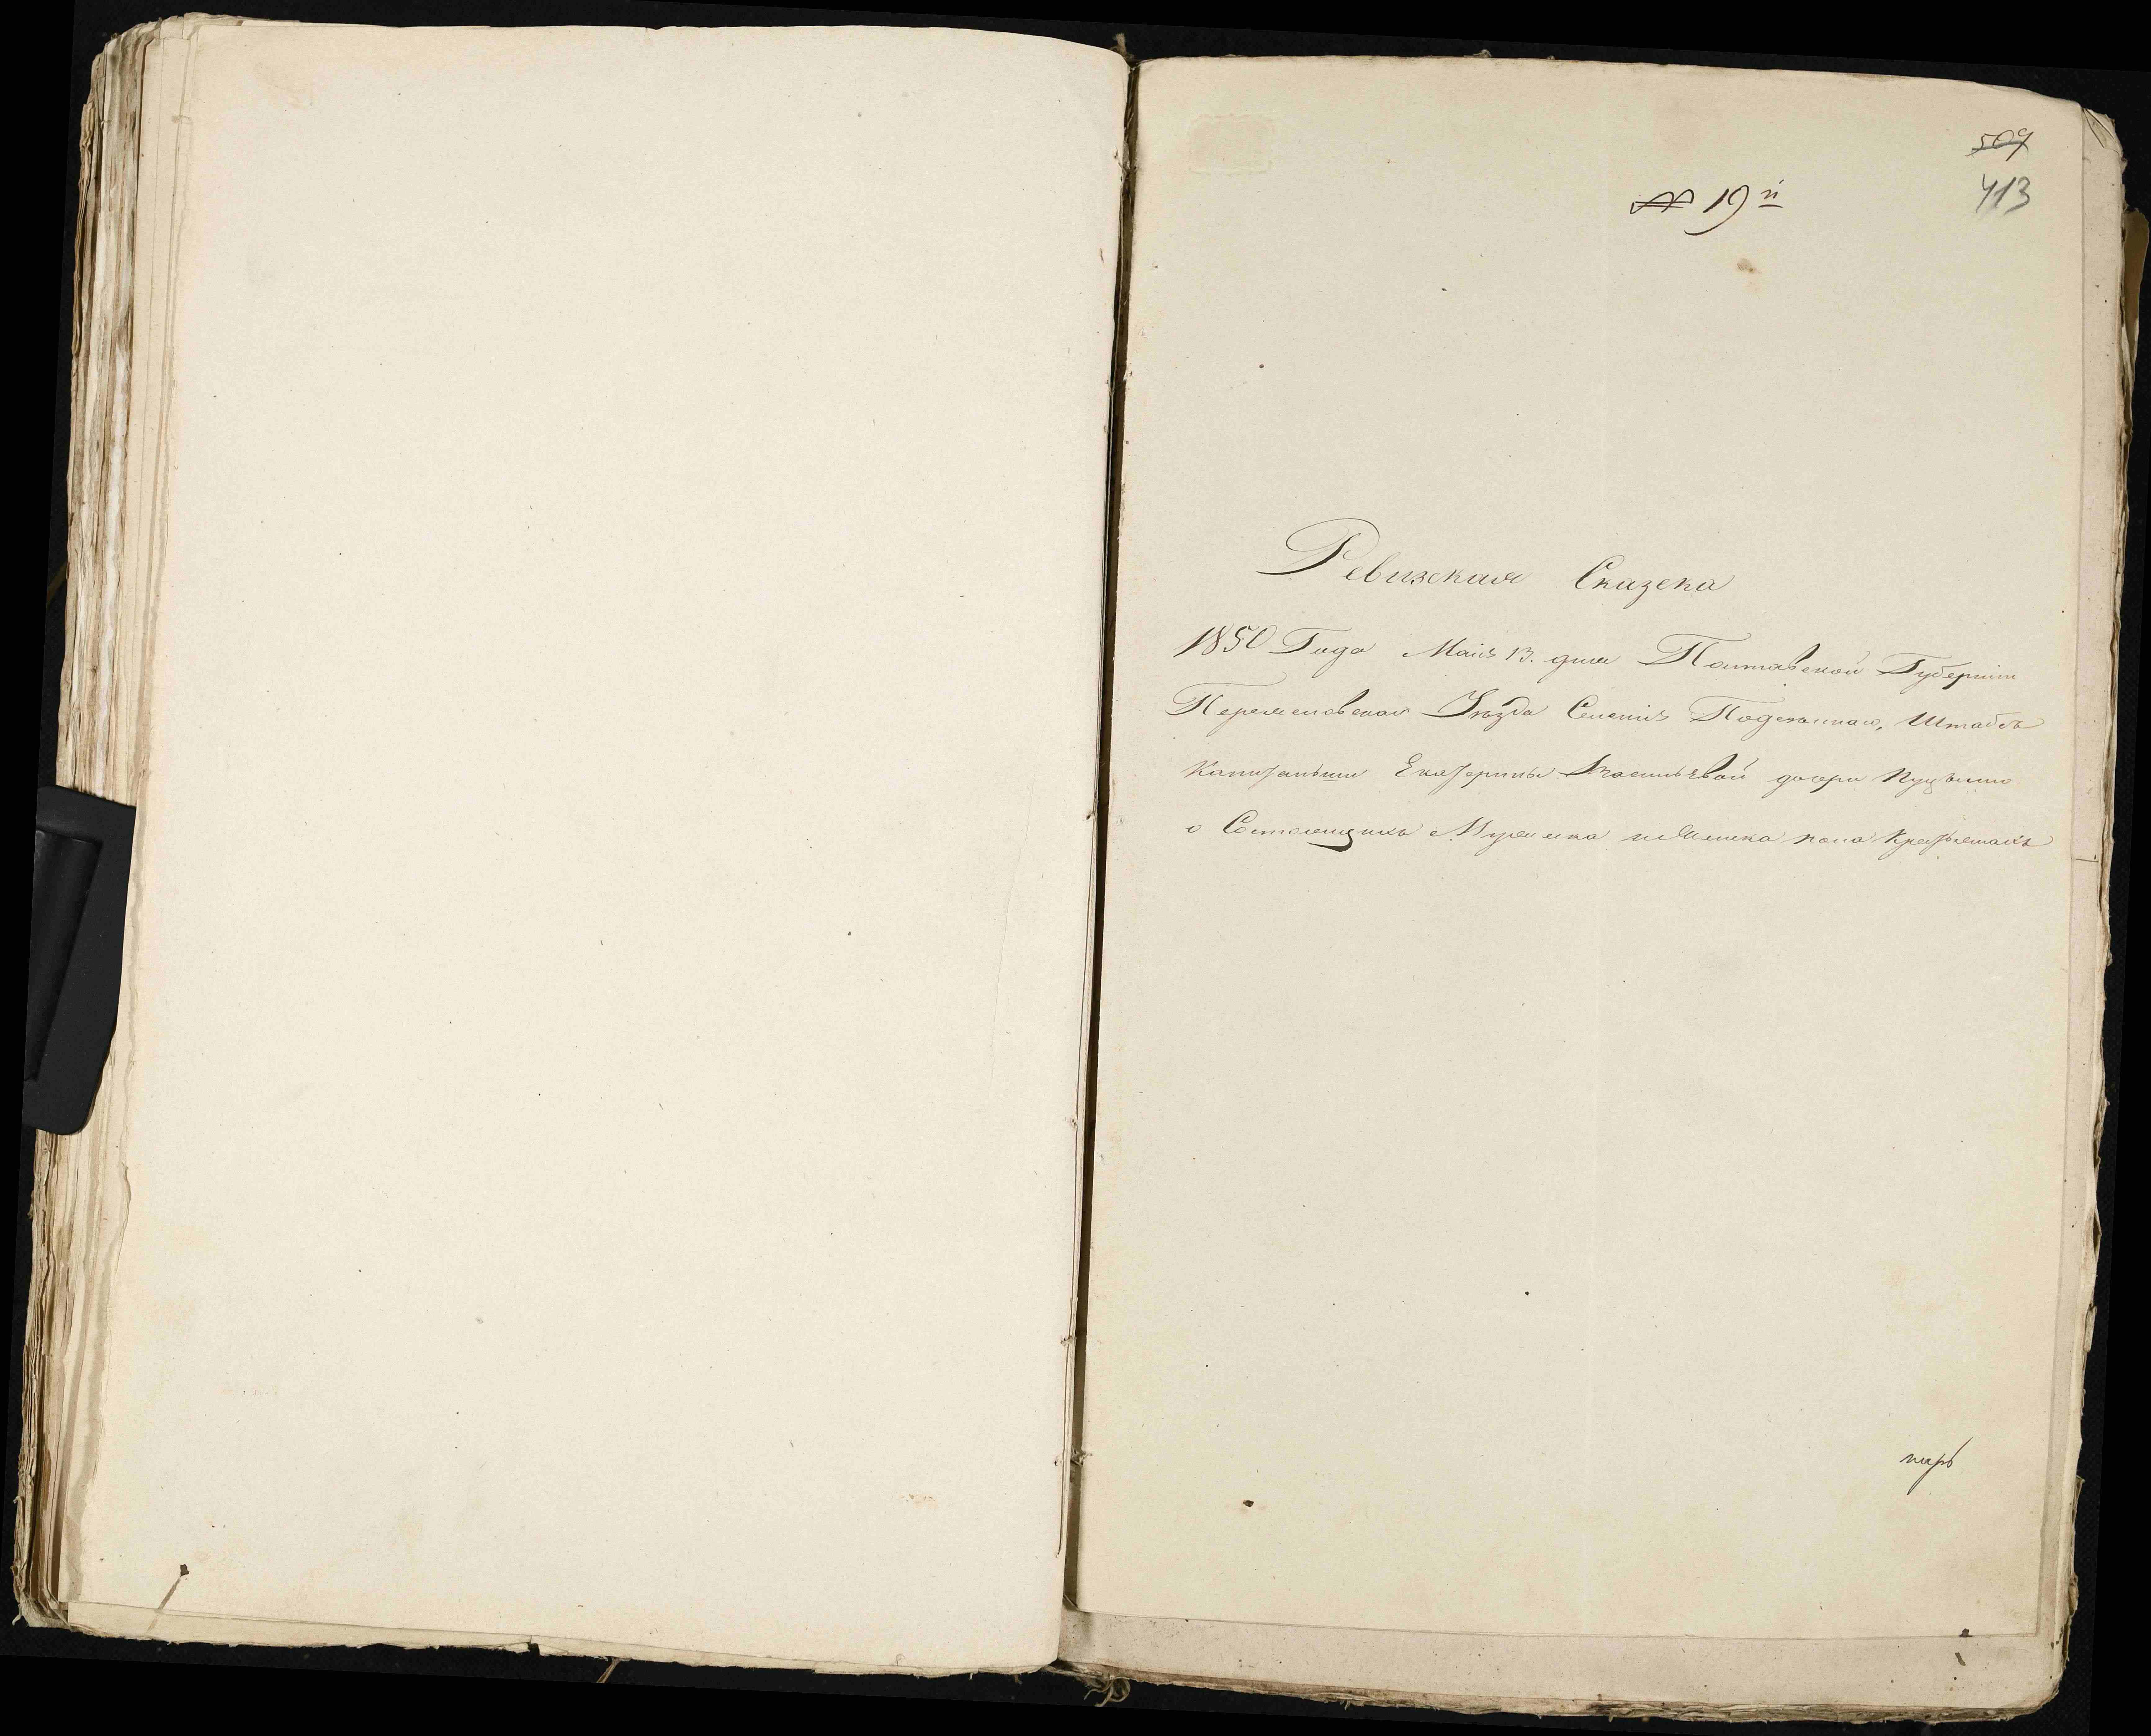 509
413
№ 19й
Ревизская Сказка
1850 Года Маія 13. дня Полтавской Губерніи
Уѣзда Селенія Штабсъ
Капитанши Екатерины Васильевой дочери
о Состоящихъ Мужеска и Женска пола Крестьянахъ